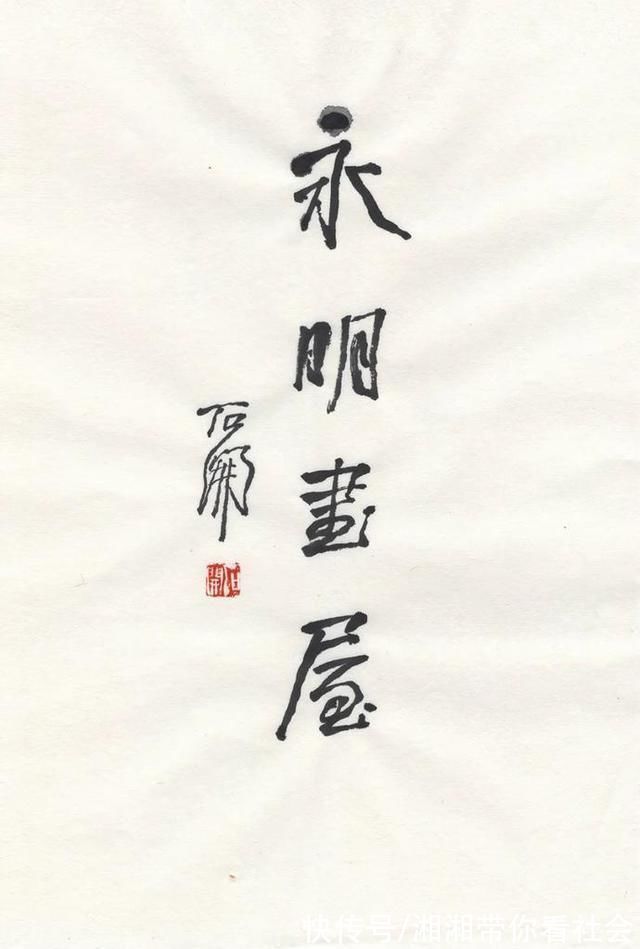 永明畫屋
石開
石開
快传号/湘湘带你看社会